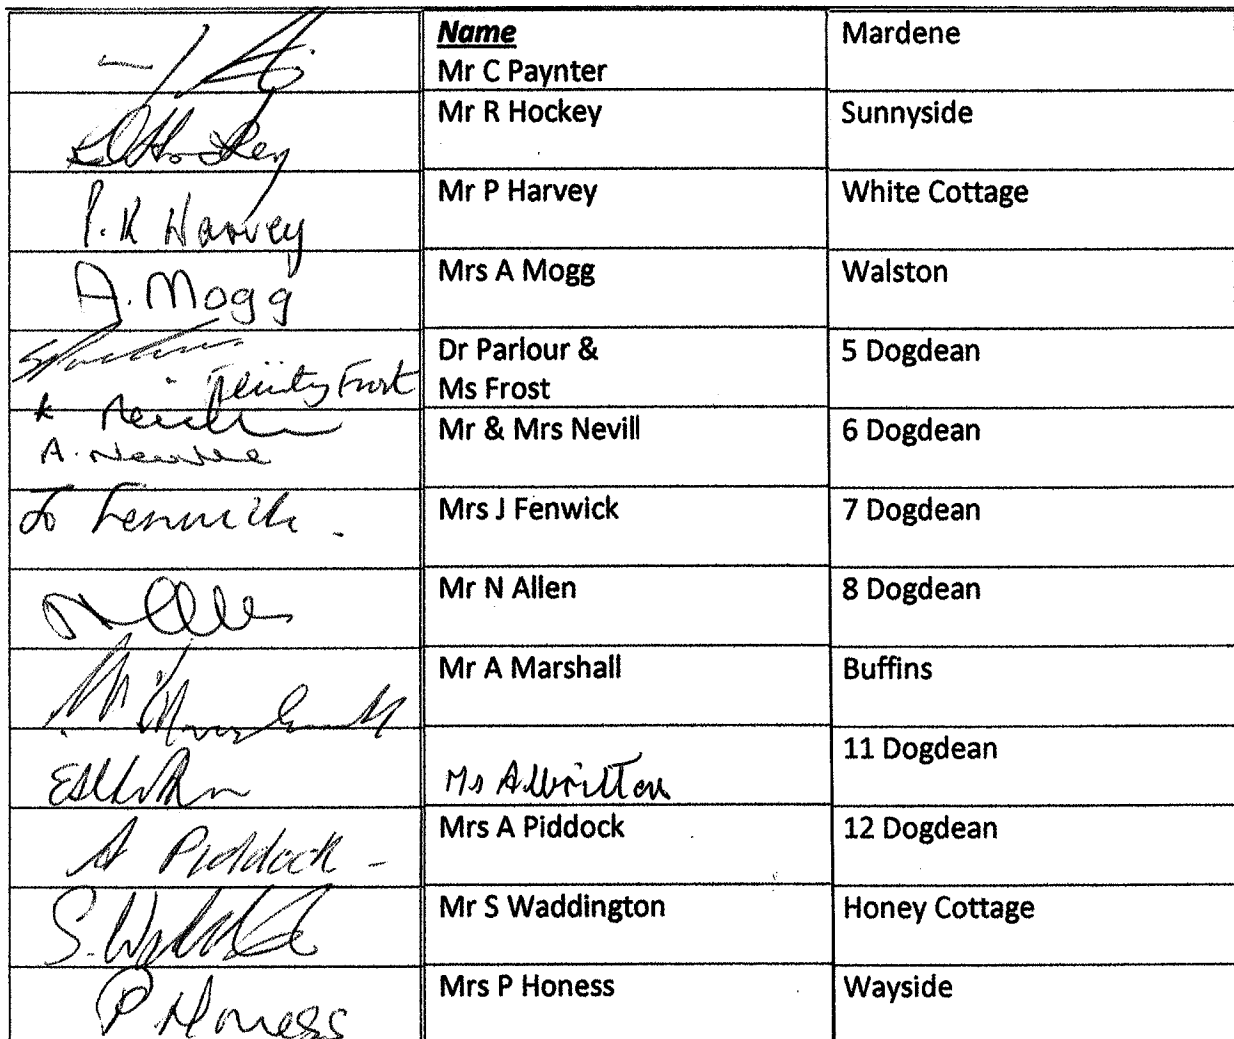 Name
Mr C Paynter
Mardene
Mr R Hockey
Sunnyside
P. K Harvey
Mr P Harvey
White Cottage
A. Mogg
Mrs A Mogg
Walston
Felicity Frost
Dr Parlour &
Ms Frost
5 Dogdean
A. Neville
Mr & Mrs Nevill
6 Dogdean
Jo Fenwick.
Mrs J Fenwick
7 Dogdean
N Allen
Mr N Allen
8 Dogdean
Mr A Marshall
Buffins
Ms
11 Dogdean
A Piddock -
Mrs A Piddock
12 Dogdean
Mr S Waddington
Honey Cottage
P Honess
Mrs P Honess
Wayside